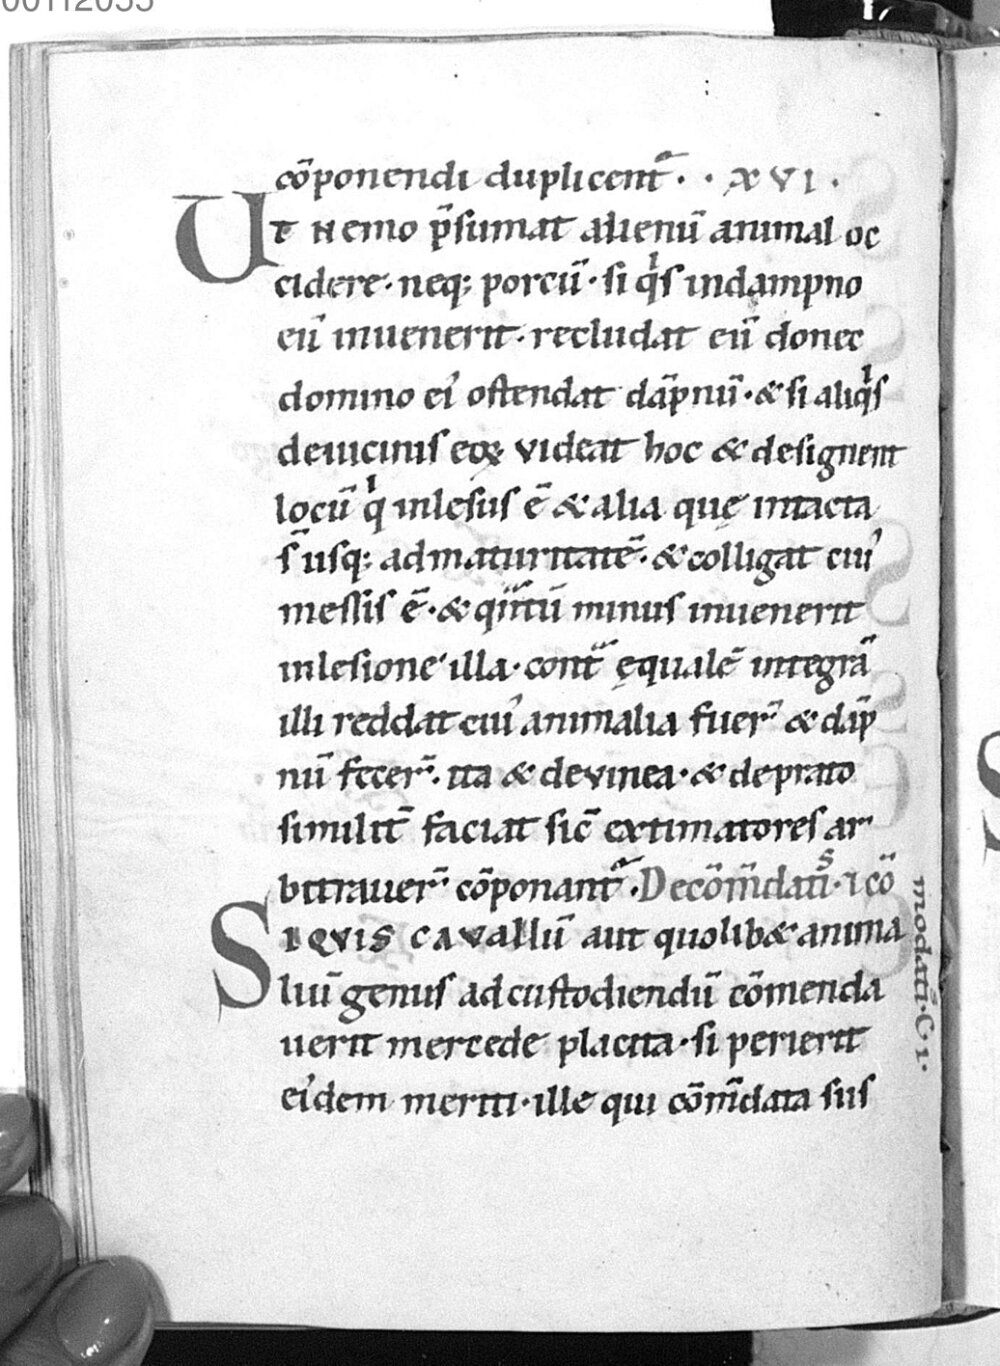 cōponendi duplicent᷑ · · XVI ·
UT Nemo p̄sumat alienū animal oc
cidere · neq; porcū · si q̍s indampno
eū inuenerit · recludat eū donec
domino ei᾽ ostendat dāpnū · & si aliq̍s
deuicinis eoꝝ videat hoc & designent
locū q̍ inlesus ē & alia quę intacta
s̄ usq; admaturitatē · & colligat cui᾽
messis ē · & qͣntū minus inuenerit
inlesione illa · contͣ ęqualē integrā
illi reddat cui᾽ animalia fuer̄ & dāp
nū fecer̄ · ita & devinea · & deprato
similit̄ faciat sic̄ extimatores ar
bitrauer̄ cōponant᷑ · Decōm̄datiˢ · ⁊ cō
modatiˢ · C · I ·
SIQVIS CAVAllū aut quolib& anima
liū genus adcustodiendū cōmenda
uerit mercede placita · si perierit
ei᾽dem meriti · ille qui cōm̄data sus